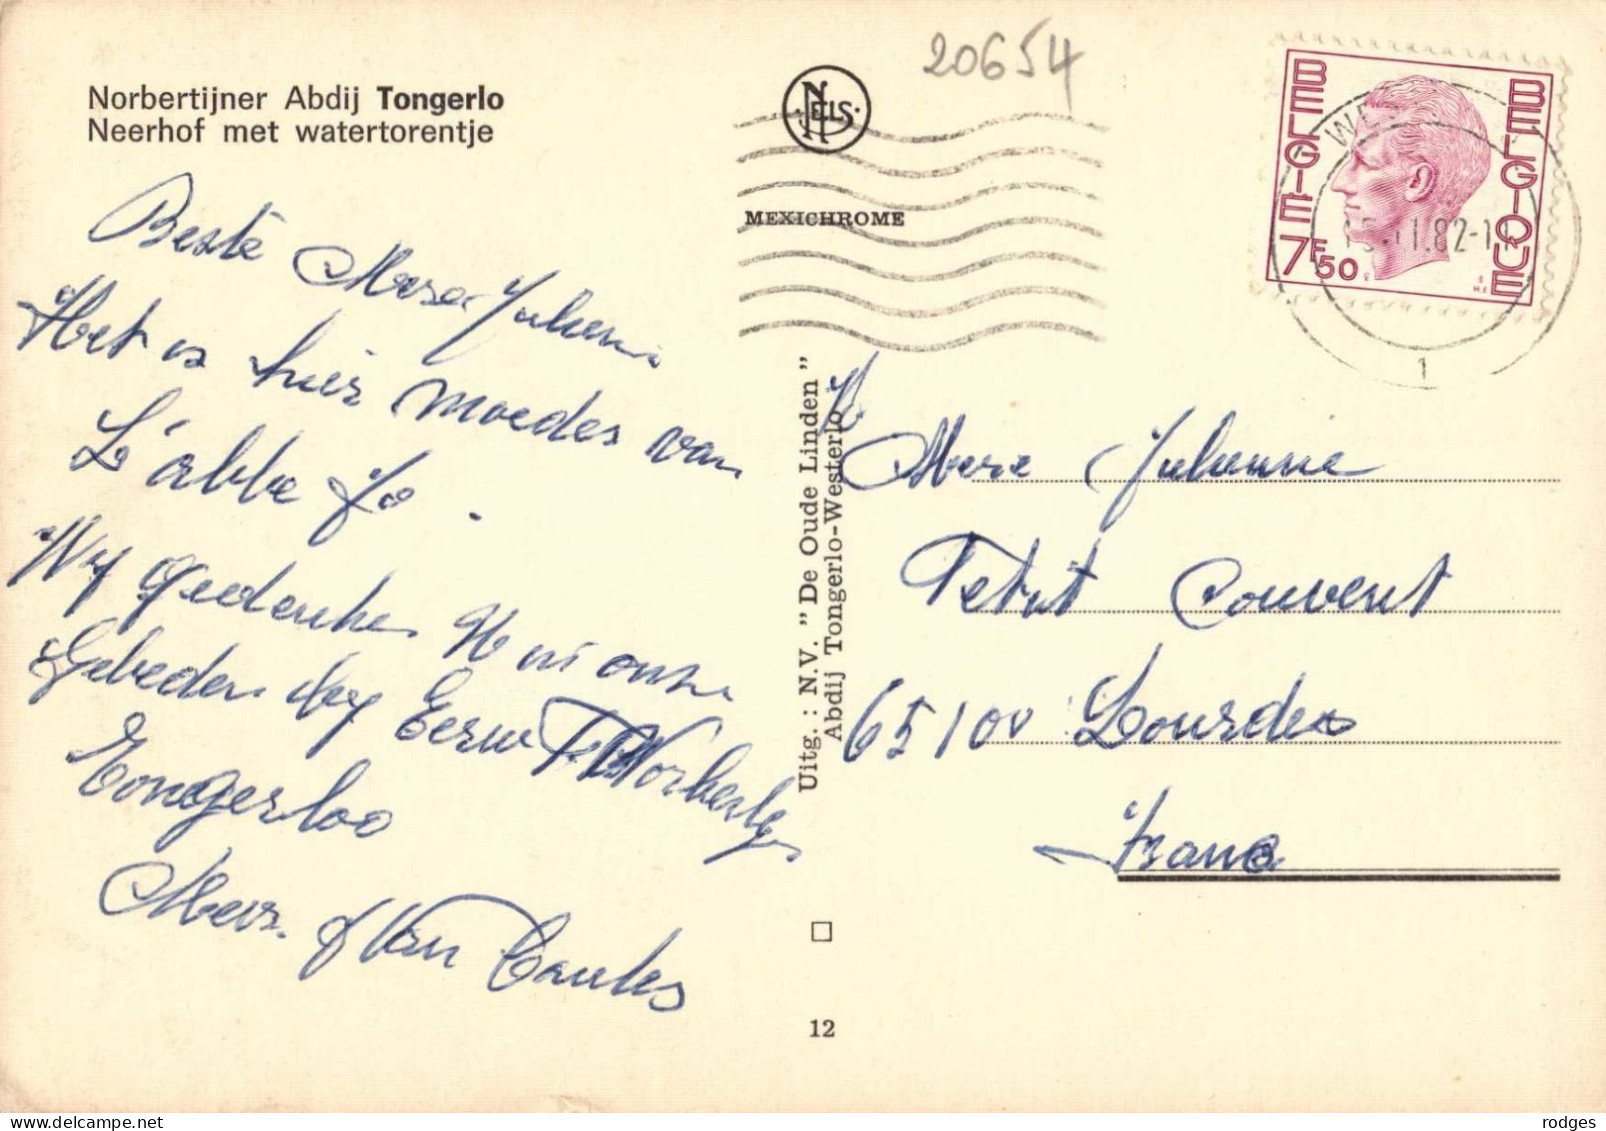 Norbertijner Abdij Tongerlo
Neerhof met watertorentje
20654
NELS
MEXICHROME
BELGIE
BELGIQUE
7F50
WES
11.82-1
1
Beste Mere Julienne
Het is hier moedes van
L'abbe Jo.
Wy gedenken U in onze
Gebeden by Eerw
Tongerloo
Mevr. J Van
Uitg. : N.V. "De Oude Linden"
Abdij Tongerlo-Westerlo
Mere Julienne
Petit Couvent
65100 Lourdes
France
12
rodges